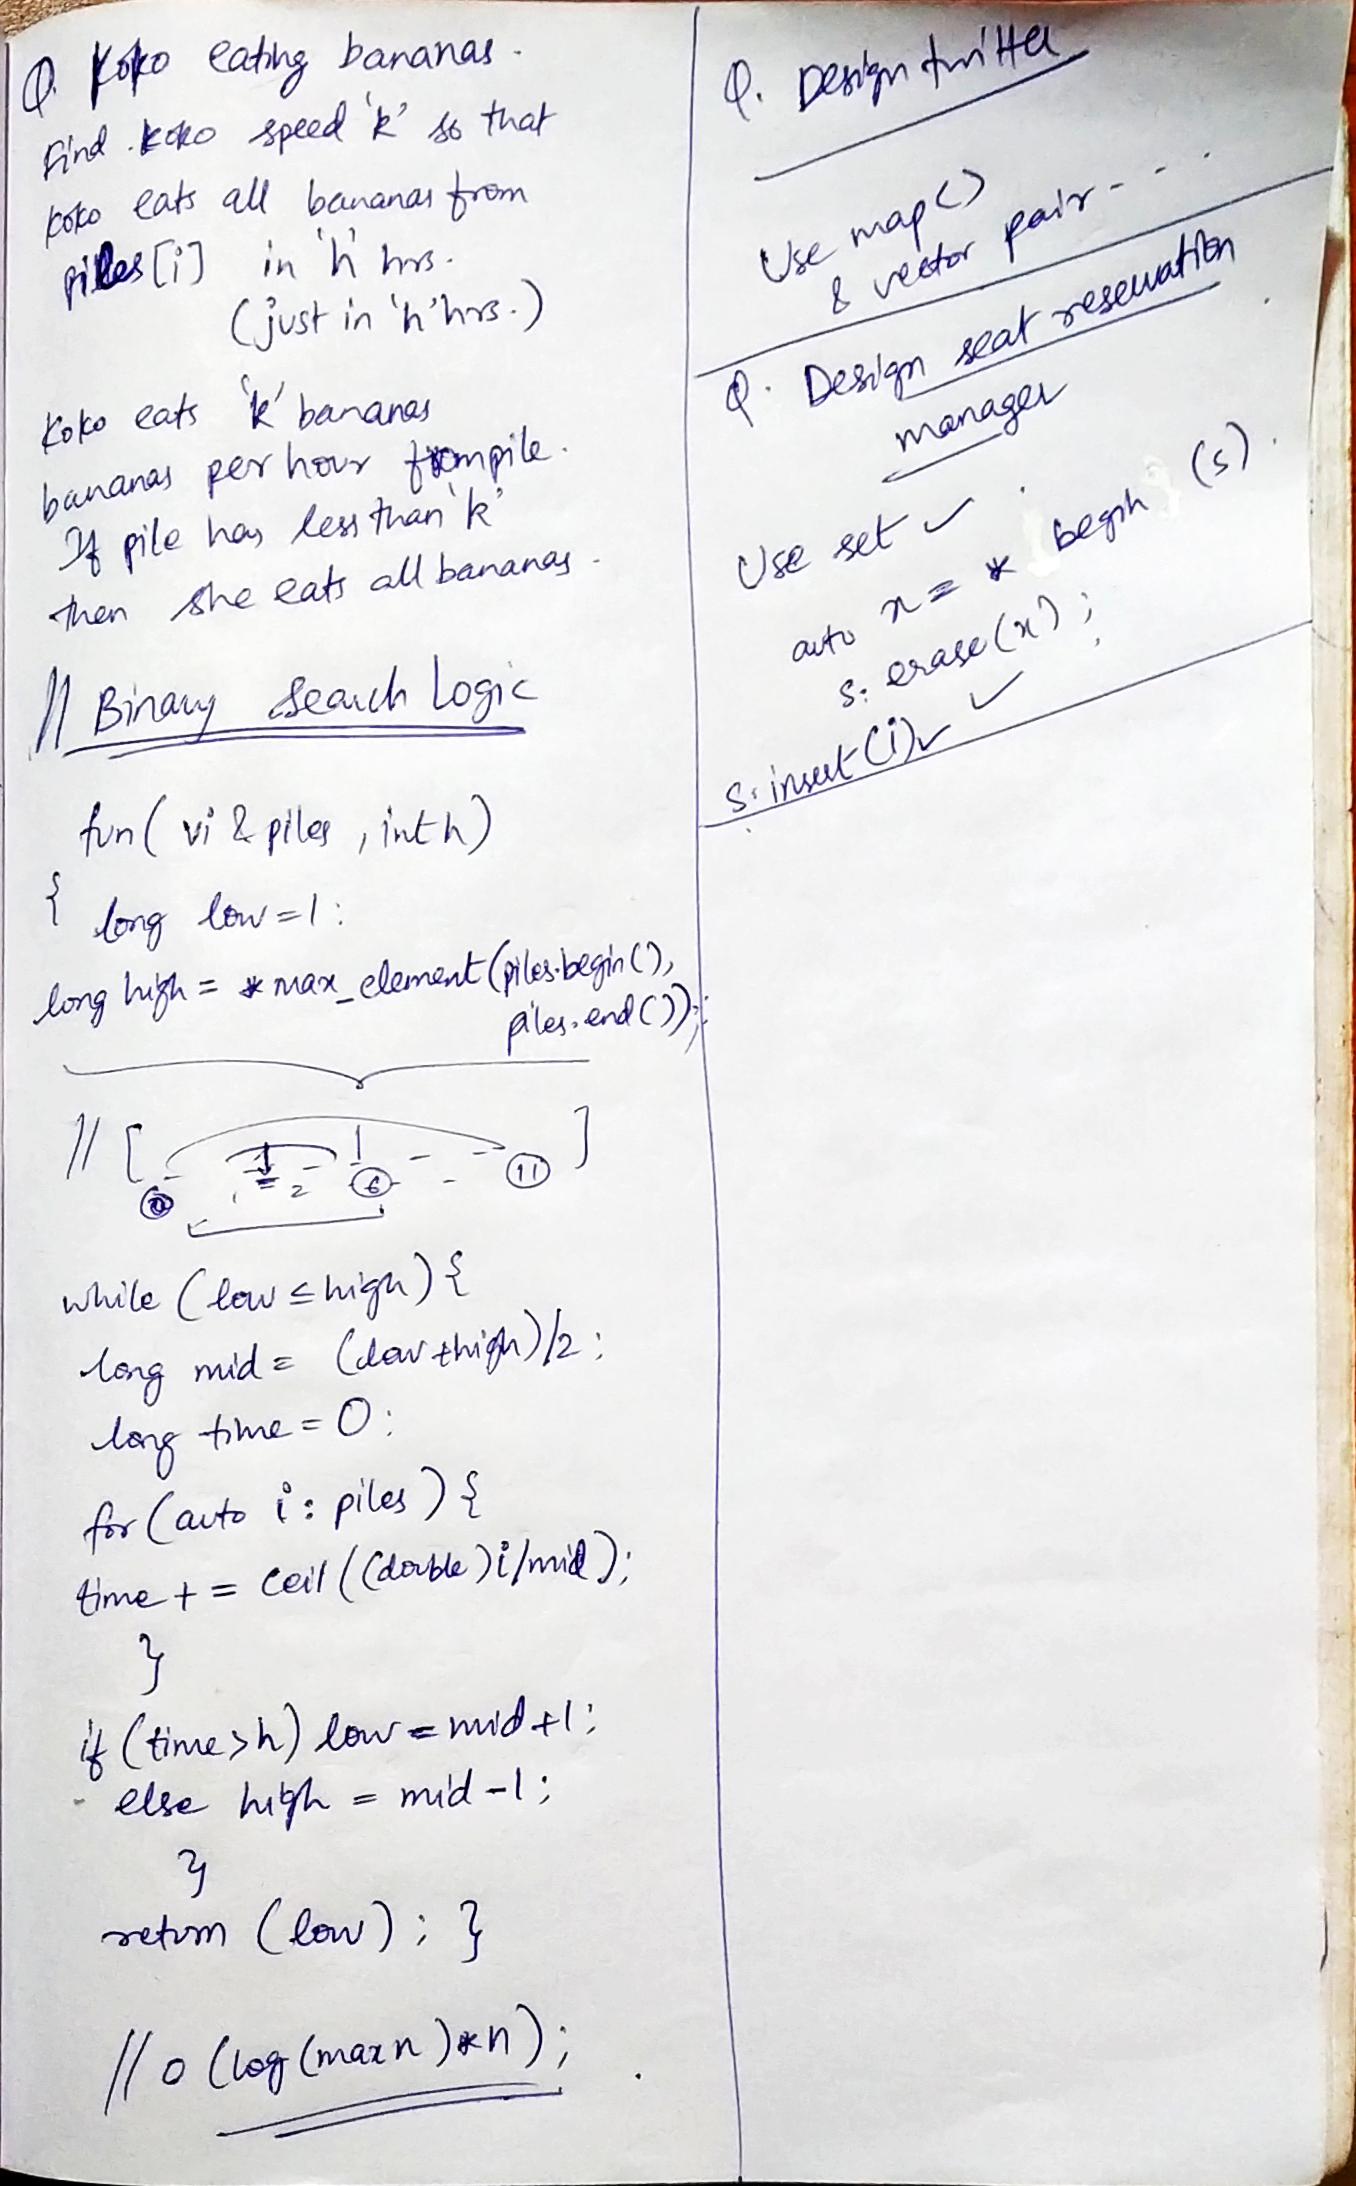 Q. Koko eating bananas.
Find koko speed 'k' so that
koko eats all bananas from
piles[i] in 'h' hrs.
(just in 'h' hrs.)
Koko eats 'k' bananas
bananas per hour from pile.
If pile has less than 'k'
then she eats all bananas.
// Binary Search Logic
fun( vi & piles , int h)
{ long low=1;
long high = * max_element(piles.begin(),
piles.end());
// [ - - - - - - ]
0 1 2 6 11
while (low ≤ high) {
long mid = (low+high)/2;
long time = 0;
for (auto i : piles) {
time + = ceil((double)i/mid);
}
if (time>h) low = mid+1;
else high = mid-1;
}
return (low); }
// O (log(maxn)*n);
Q. Design twitter
Use map()
& vector pair - - .
Q. Design seat reservation
manager
Use set ✓
auto x = * begin (s).
s. erase(x);
s. insert(i) ✓